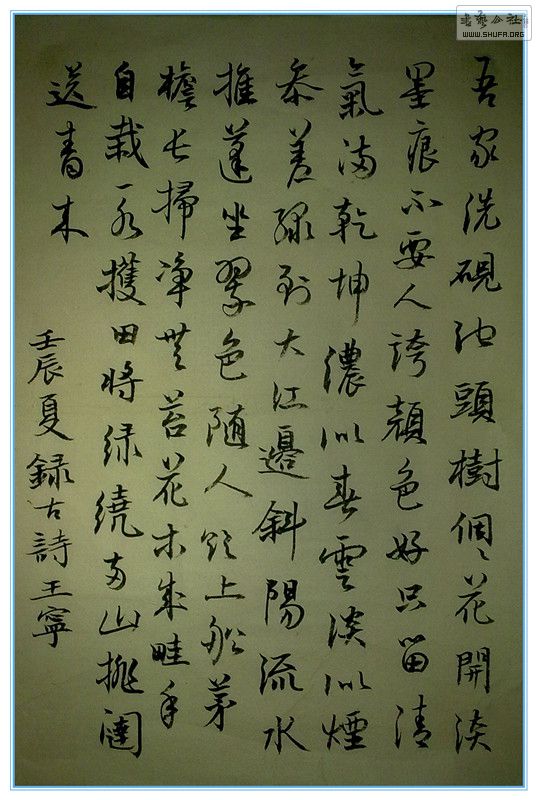 書藝公社
WWW.SHUFA.ORG
吾家洗硯池頭樹個々花開淡
墨痕不要人誇顏色好只留清
氣滿乾坤濃似春雲淡似煙
參差綠到大江邊斜陽流水
推蓬坐翠色隨人欲上船茅
檐長掃淨無苔花木成畦手
自栽一水護田將綠繞兩山排闥
送青來
壬辰夏錄古詩王寧